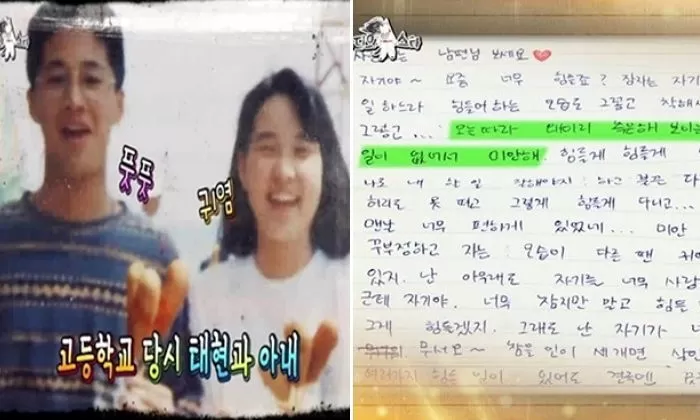 풋풋
귀염
고등학교 당시 태현과 아내
남편님 보세요
자기야~ 요즘 너무 힘들죠? 잠자는
일 하느라 힘들어 하는 모습도 그렇고 착해
그렇고... 오늘따라
일이 없어서 미안해. 힘들게 힘들게
나도 내 할 일 잘해야지
허리도 못 펴고 그렇게 힘들게 다니고...
맨날 너무 편하게 있었네... 미안
꾸부정하고 자는 모습이 다른 땐 귀여
있지. 난 아무래도 자기를 너무 사랑
근데 자기야. 너무 참지만 말고 힘든
그게 힘들겠지. 그래도 난 자기가
무서오~ 참을 인이 세개면 살인
여러가지 힘든 일이 있어도 결국엔